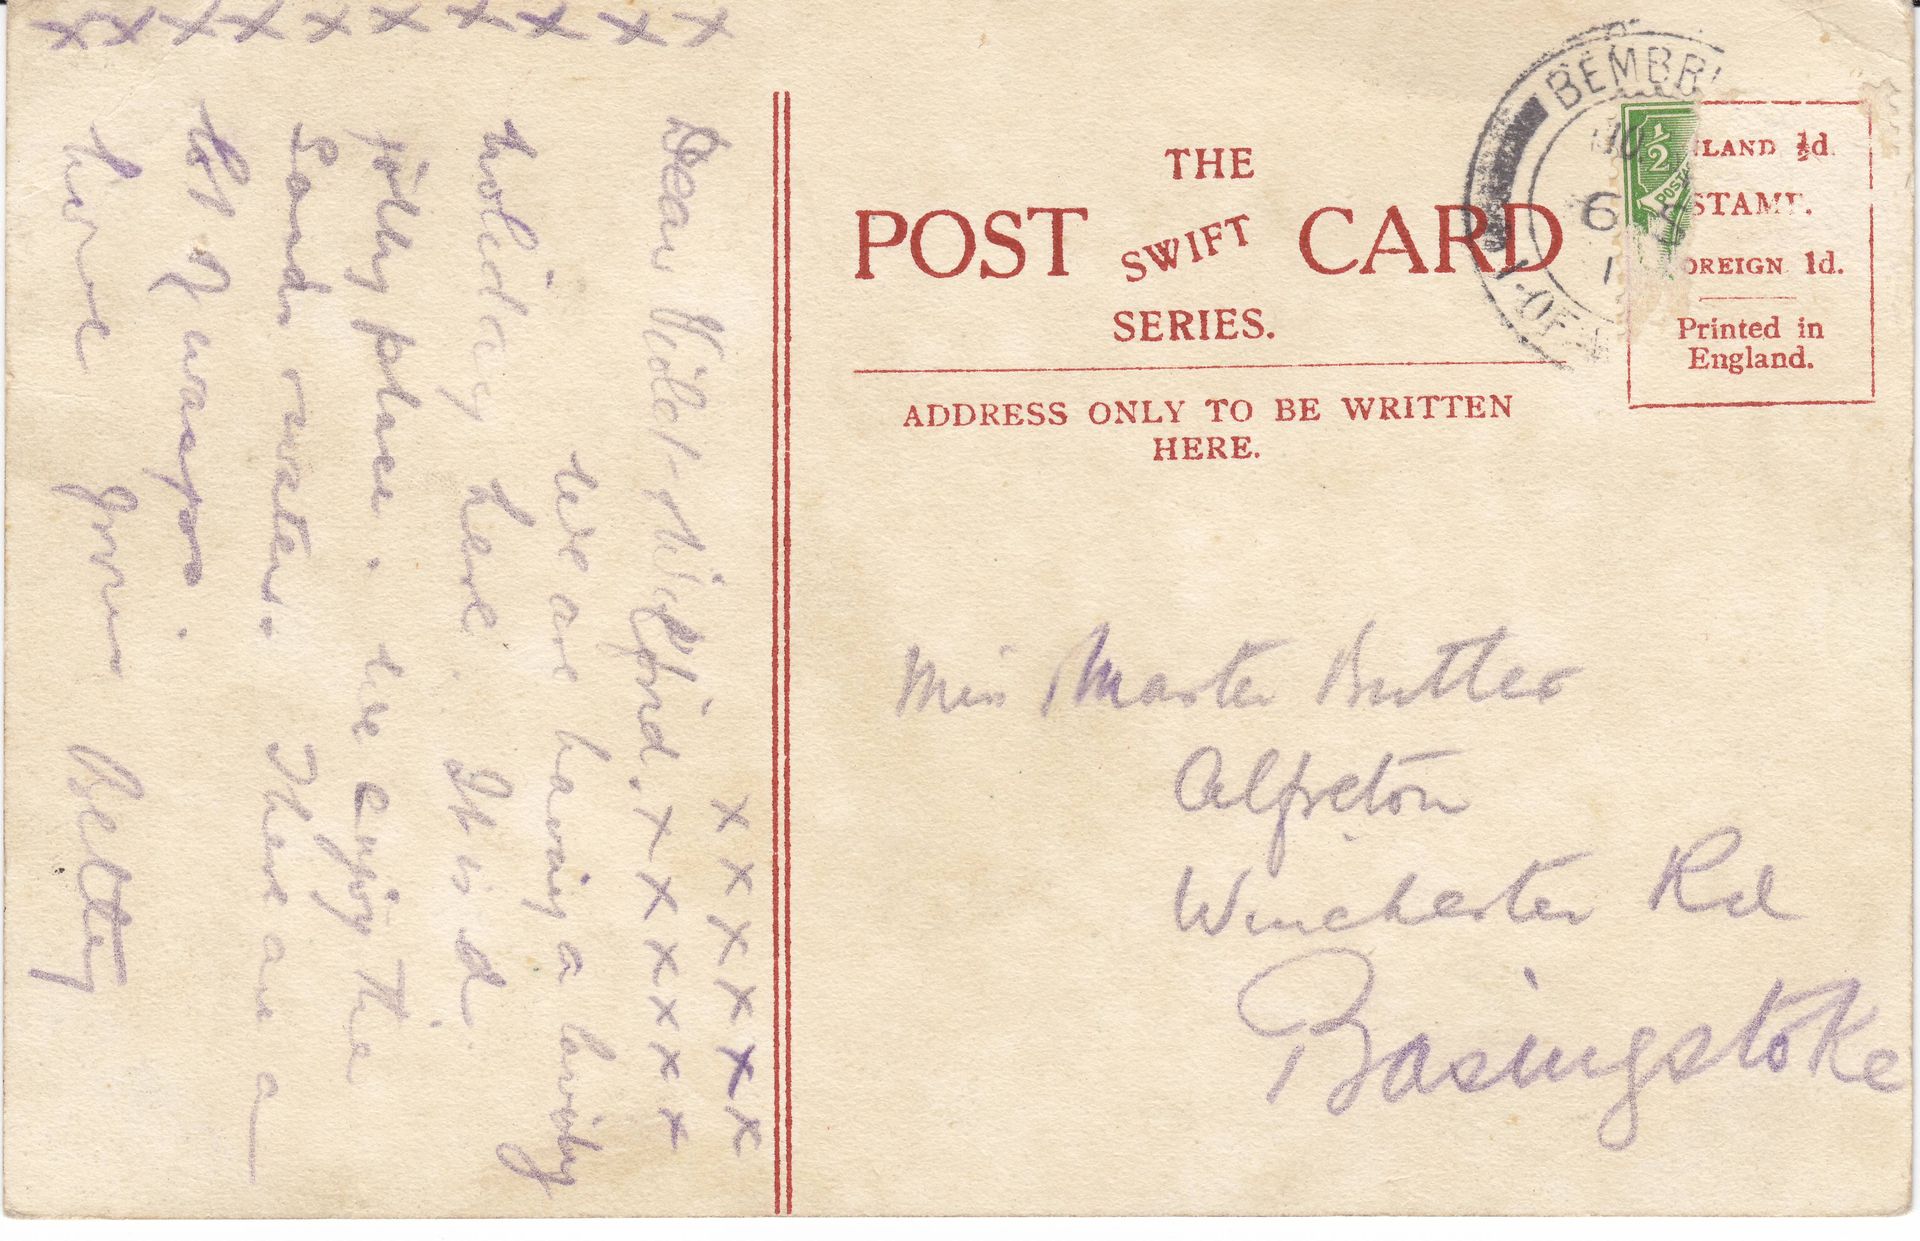 x x x x x x x x x x
Dear Violet & Clifford. x x x x x x
x x x x x x
We are having a lovely
holiday here. It is a
jolly place. We enjoy the
Sands & water. There are a
lot of wasps.
Love from Betty
THE
POST SWIFT CARD
SERIES.
ADDRESS ONLY TO BE WRITTEN
HERE.
BEMBRI
I. OF
10
6
1
½
POSTA
LAND ½d.
STAMP.
OREIGN 1d.
Printed in
England.
Miss Master Butler
Alfreton
Winchester Rd
Basingstoke